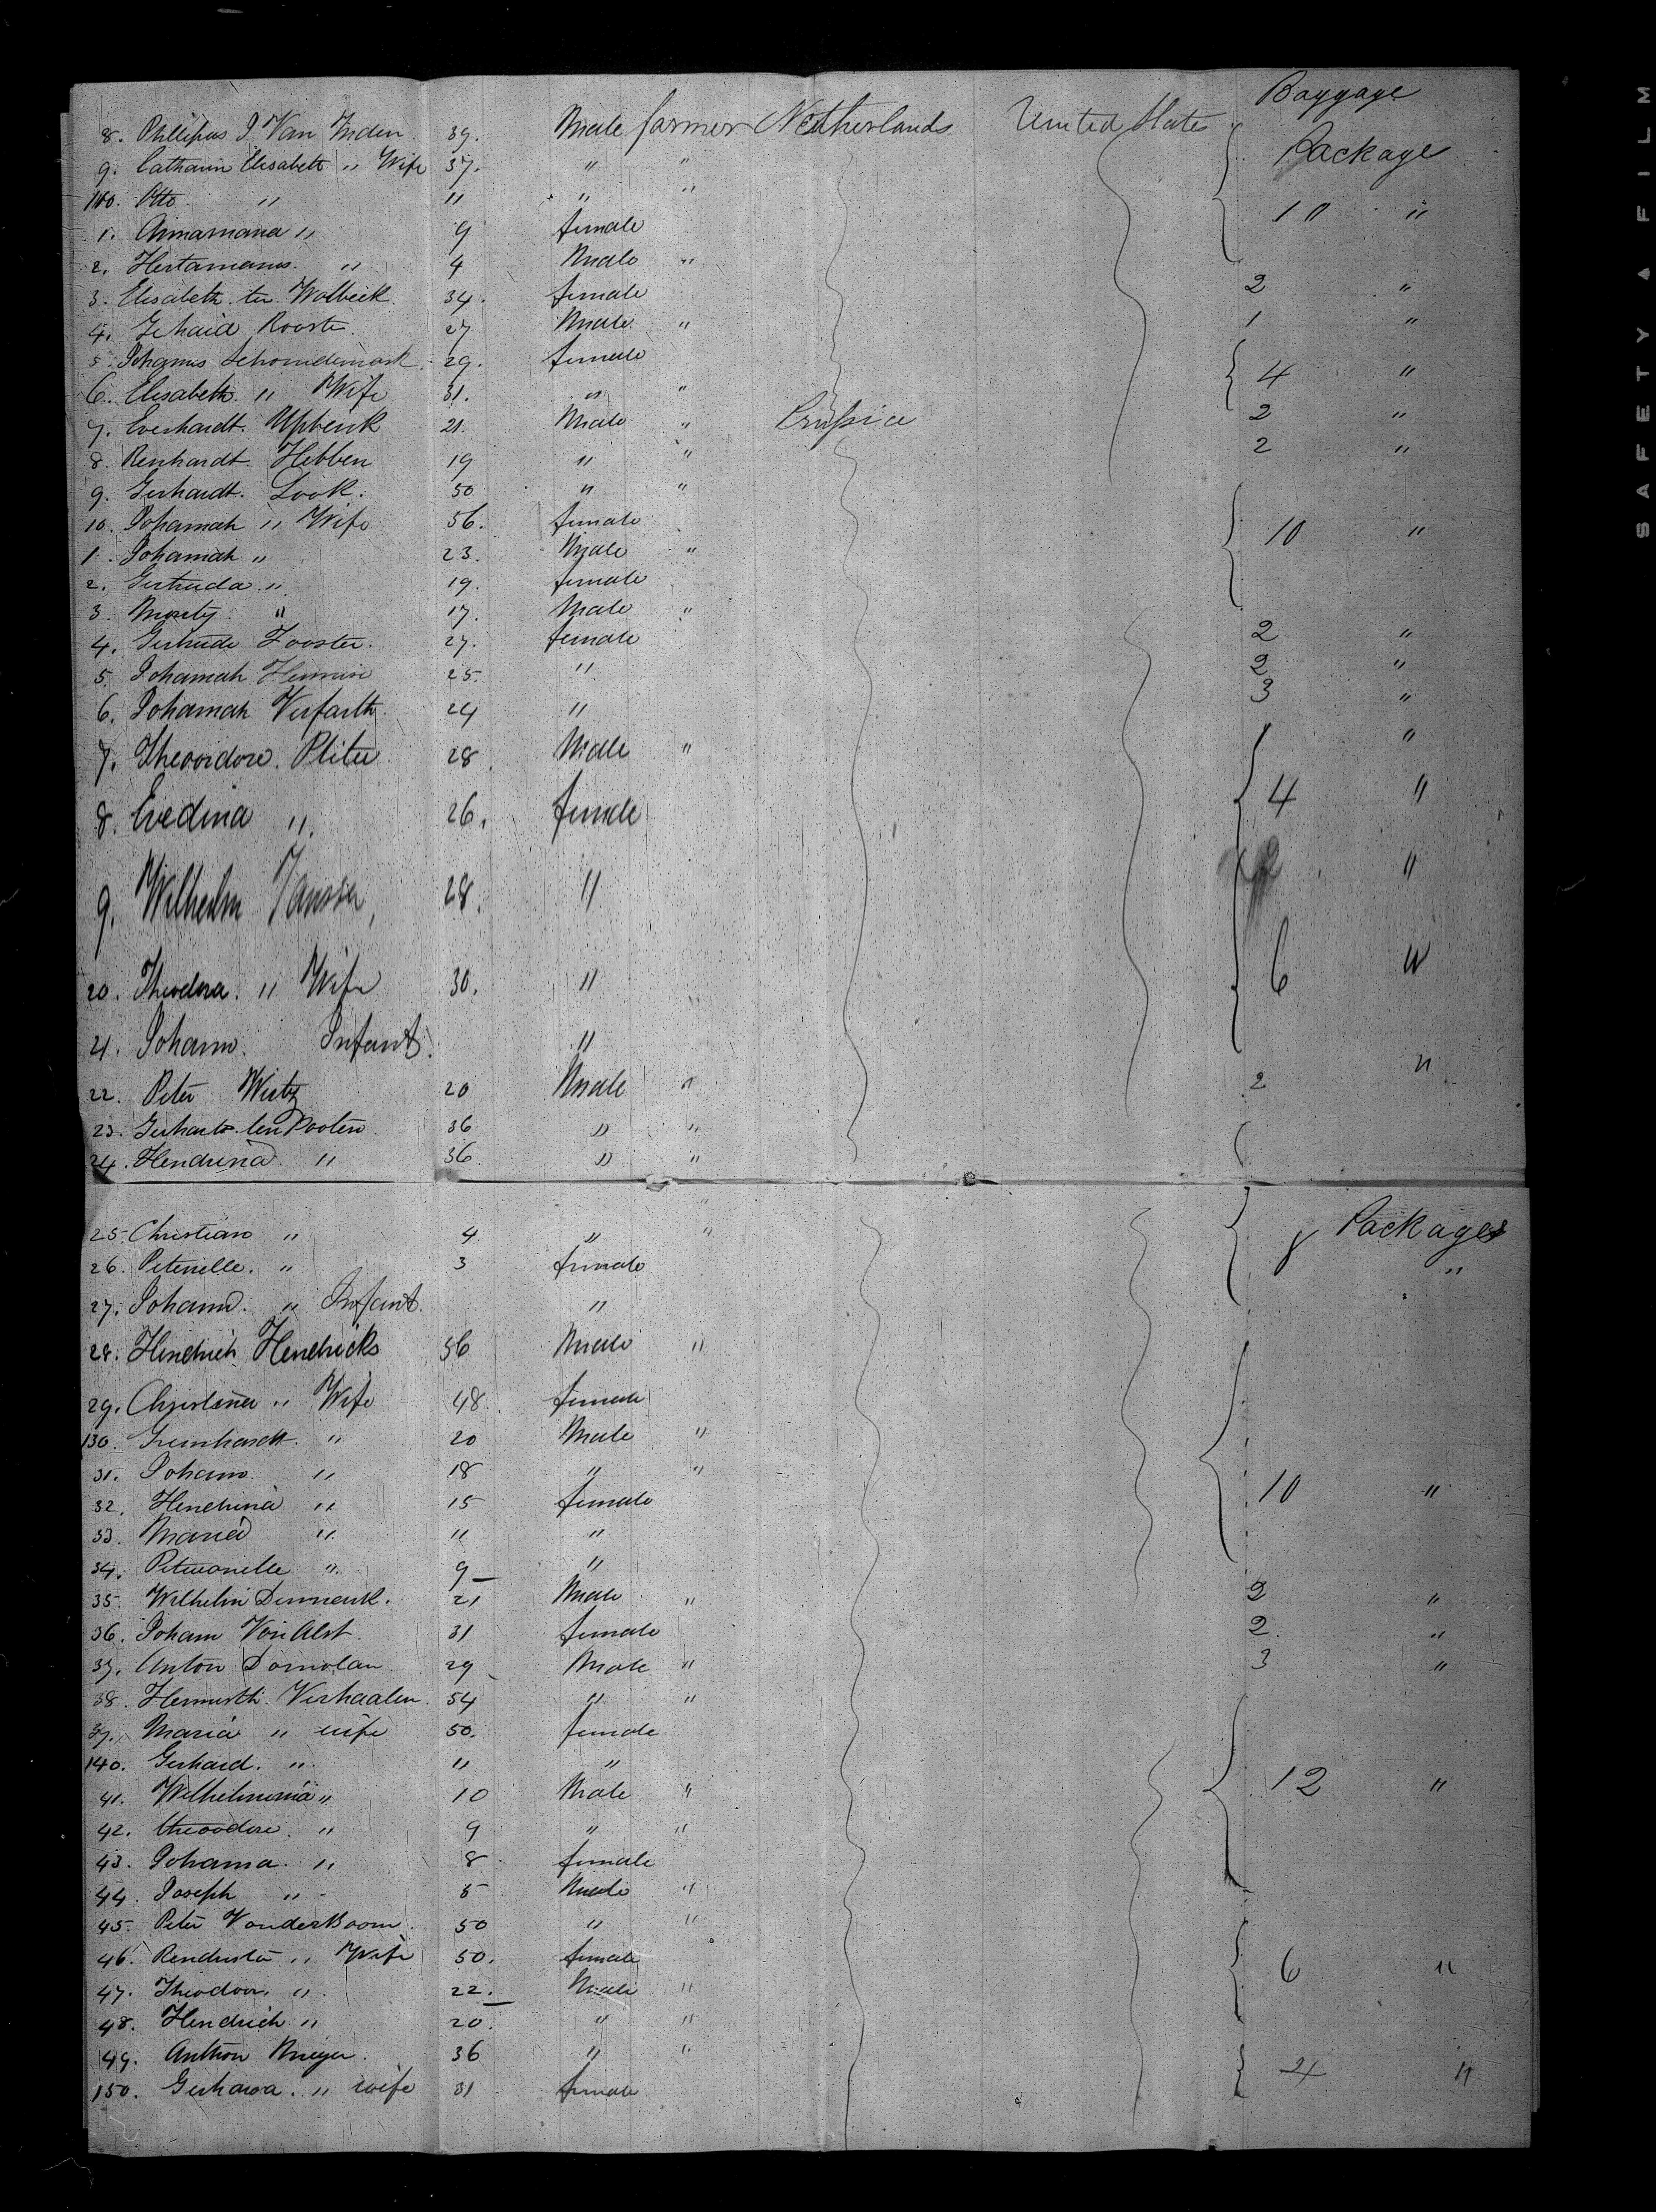 Baggage
8. Phillipus J. Van Inden 39. Male farmer Netherlands United States Package
9. Catharin Elisabeth " Wife 37. " "
100. Otto " 11 " " 10 "
1. Annamaria " 9 female
2. Hertamanns. " 4 Male "
3. Elisabeth ter Wolbeek. 34. female 2 "
4. Gehaid Rooste 27 Male " 1 "
5. Johannis 29. female
6. Elisabeth. " Wife 31. " " 4 "
7. Everhardt. Upbenk 21. Male " Prussia 2 "
8. Renhardt. Hebben 19 " " 2 "
9. Gerhardt. Look. 50 " "
10. Johannah " Wife 56. female 10 "
1. Johannah " 23. Male "
2. Gertruda " 19. female
3. " 17. Male "
4. Gertrude Zooster. 27. female 2 "
5. Johannah 25. " 2 "
6. Johannah Verfarth. 24 " 3 "
7. Theoordore. Plitee 28 Male " "
8. Evedina " 26. female 4 "
9. Wilhelm Janssen, 28. " 2 "
20. Theodora. " Wife 30. " 6 "
21. Johann. Infant. "
22. Peter Wirtz 20 Male " 2 "
23. Gerhart ten Pooten 36 " "
24. Hendrina " 36 " "
25. Christian " 4 " " 8 Packages
26. Petenelle. " 3 female "
27. Johann. " Infant. "
28. Hendrich Hendricks 56 Male "
29. Christina " Wife 48. female
130. Grenhardt. " 20 Male "
31. Johann " 18 " "
32. Hendrina " 15 female 10 "
33. Maria " 11 "
34. Petronelle " 9 "
35. Wilhelm Denmenk. 21 Male " 2 "
36. Johann Von Alst. 31 female 2 "
37. Anton Dornolan 29 Male " 3 "
38. Hermerth. Verhaalen. 54 " "
39. Maria " wife 50. female
140. Gerhard. " 11 "
41. Wilhelmina " 10 Male " 12 "
42. theoodore. " 9 " "
43. Johanna. " 8 female
44. Joseph " 5 Male "
45. Peter VonderBoom. 50 " "
46. " Wife 50. female 6 "
47. Theodoor. " 22. Male "
48. Hendrich " 20. " "
49. Anthon Meyer. 36 " "
150. Gerhara. " wife 31 female 4 "
SAFETY A FILM